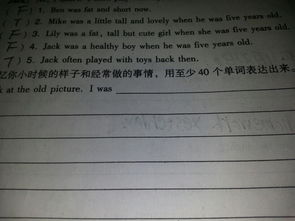 ( F ) 1. Ben was fat and short now.
( T ) 2. Mike was a little tall and lovely when he was five years old.
F ) 3. Lily was a fat, tall but cute girl when she was five years old.
F ) 4. Jack was a healthy boy when he was five years old.
T ) 5. Jack often played with toys back then.
忆你小时候的样子和经常做的事情,用至少 40 个单词表达出来。
k at the old picture. I was